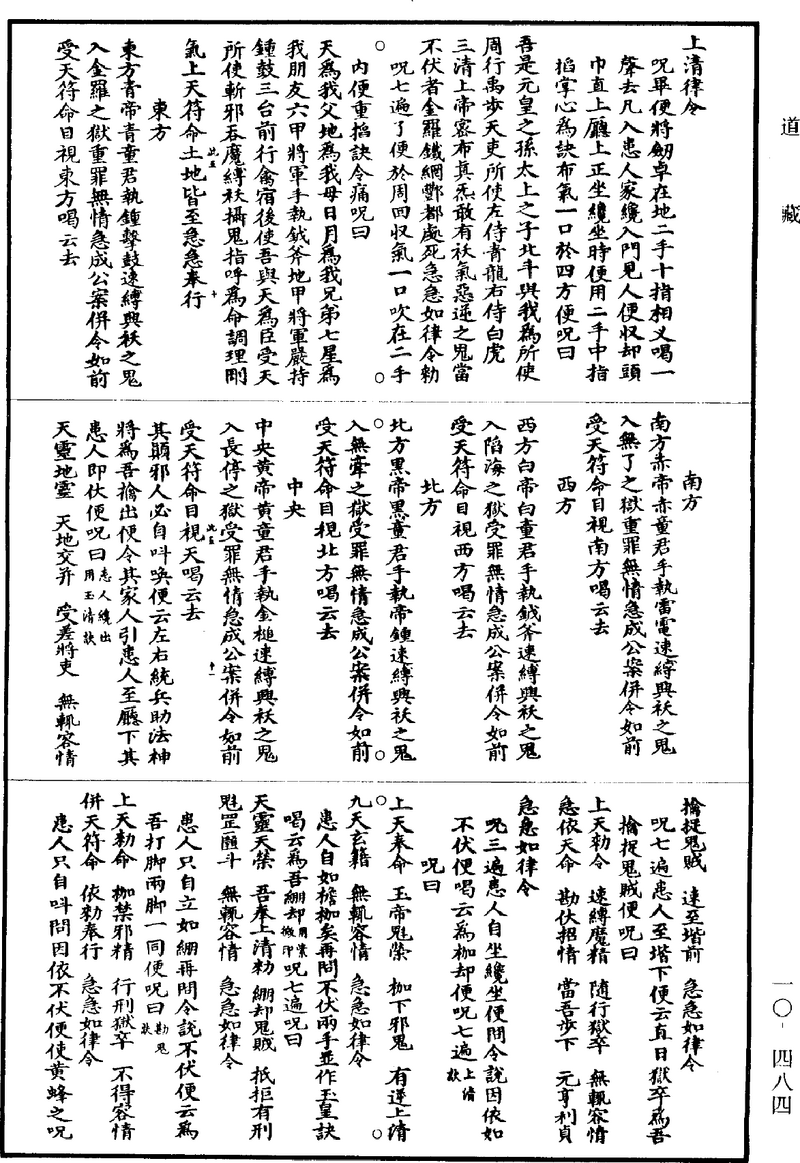 道藏
上清律令
呪畢便將劒卓在地二手十指相义喝一
聲去凡入患人家纔入門見人便収却頭
巾直上廳上正坐纔坐時便用二手中指
搯掌心為訣布氣一口於四方便呪曰
吾是元皇之孫太上之子北斗與我為所使
周行禹步天吏所使左侍青龍右侍白虎
三清上帝密布真炁敢有祅氣惡逆之鬼當
不伏者金羅鐵網酆都處死急急如律令勑
呪七遍了便於周回収氣一口吹在二手
內便重搯訣令痛呪曰
天為我父地為我母日月為我兄弟七星為
我朋友六甲將軍手執鉞斧地甲將軍嚴持
鍾鼓三台前行禽宿後使吾與天為臣受天
所使斬邪吞魔縛祅攝鬼指呼為命調理剛
氣上天符命土地皆至急急奉行
東方
東方青帝青童君執鍾擊鼓速縛興祅之鬼
入金羅之獄重罪無情急成公案併令如前
受天符命目視東方喝云去
南方
南方赤帝赤童君手執雷電速縛興祅之鬼
入無了之獄重罪無情急成公案併令如前
受天符命目視南方喝云去
西方
西方白帝白童君手執鉞斧速縛興祅之鬼
入陷海之獄受罪無情急成公案併令如前
受天符命目視西方喝云去
北方
北方黑帝黑童君手執帝鍾速縛興祅之鬼
入無牽之獄受罪無情急成公案併令如前
受天符命目視北方喝云去
中央
中央黃帝黃童君手執金槌速縛興祅之鬼
入長停之獄受罪無情急成公案併令如前
受天符命目視天喝云去
其顛邪人必自呌喚便云左右統兵助法神
將為吾擒出便令其家人引患人至廳下其
患人即伏便呪曰患人纔出用玉清訣
天靈地靈　天地交并　受差將吏　無輒容情
擒捉鬼賊　速至堦前　急急如律令
呪七遍患人至堦下便云直日獄卒為吾
擒捉鬼賊便呪曰
上天勑令　速縛魔精　隨行獄卒　無輒容情
急依天命　勘伏招情　當吾步下　元亨利貞
急急如律令
呪三遍患人自坐纔坐便問令說因依如
不伏便喝云為枷却便呪七遍上清訣
呪曰
上天奉命　玉帝魁榮　枷下邪鬼　有逆上清
九天玄籍　無輒容情　急急如律令
患人自如擔枷矣再問不伏兩手並作玉皇訣
喝云為吾綳却用業儆印呪七遍呪曰
天靈天榮　吾奉上清勑　綳却鬼賊　抵拒有刑
魁罡匯斗　無輒容情　急急如律令
患人只自立如綳再問令說不伏便云為
吾打脚兩脚一同便呪曰勘鬼訣
上天勑命　枷禁邪精　行刑獄卒　不得容情
併天符命　依勑奉行　急急如律令
患人只自呌問因依不伏便使黃蜂之呪
一〇-四八四